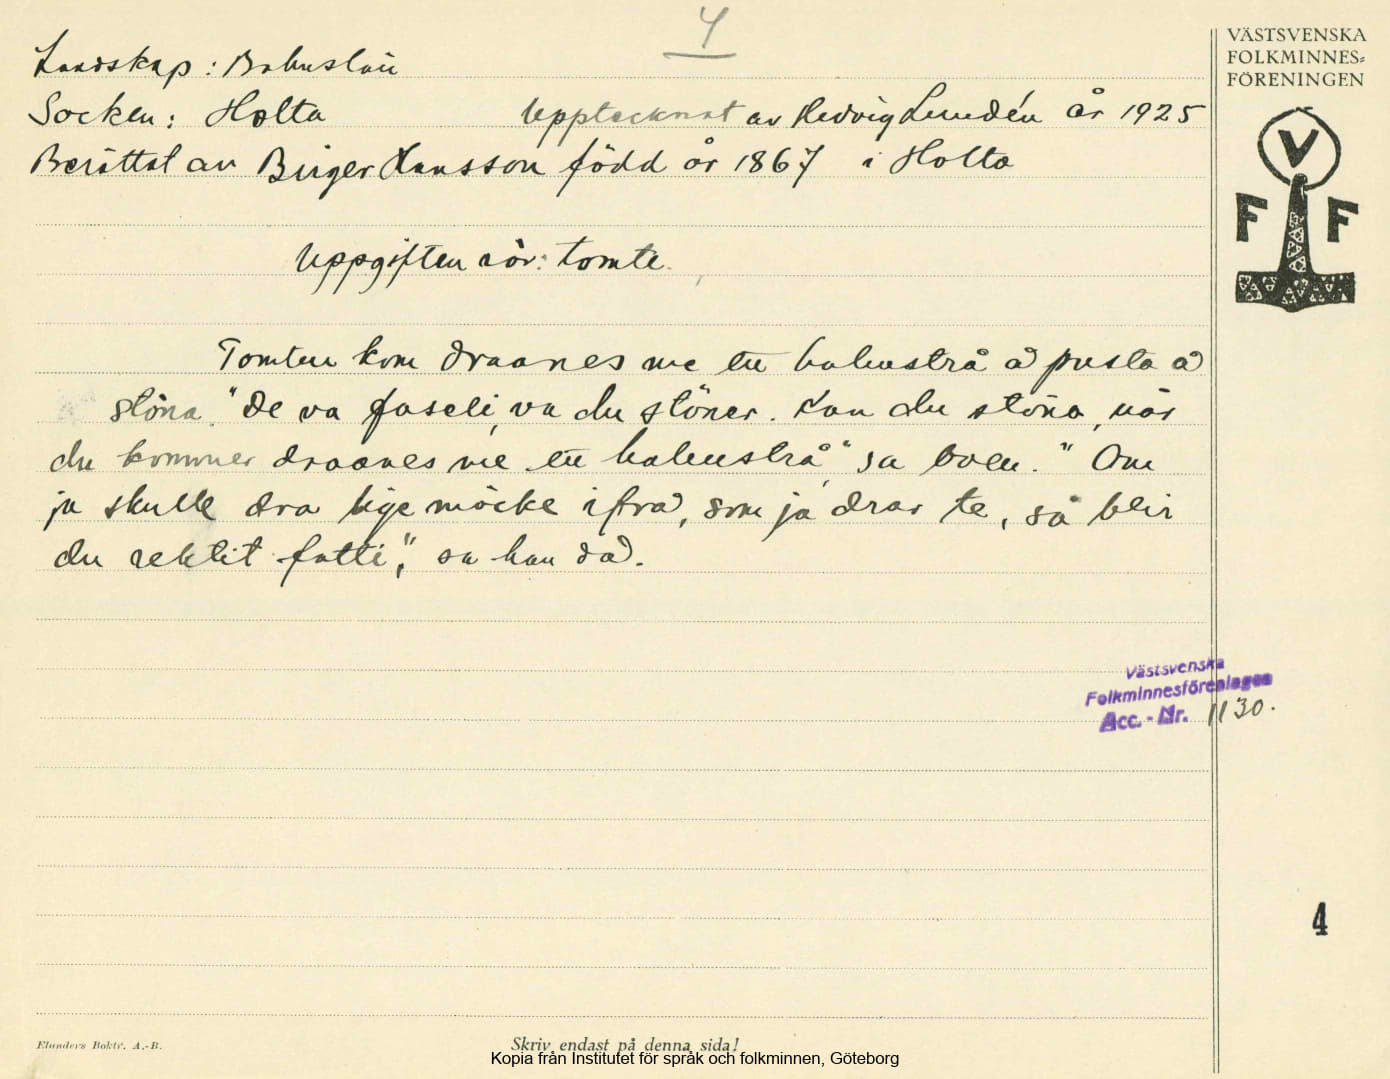 4
VÄSTSVENSKA
FOLKMINNES=
FÖRENINGEN
V
F F
Landskap: Bohuslän
Socken: Holta Upptecknat av Hedvig Lundén år 1925
Berättat av Birger Hansson född år 1867 i Holta
Uppgiften rör: tomte.
Tomten kom draanes me ett halmstrå å pusta å
stöna. "De va faseli, va du stöner. Kan du stöna, när
du kommer draanes me ett halmstrå" sa boen. "Om
ja skulle dra lige möcke ifrå, som ja drar te, så blir
du rektit fatti", sa han då.
Västsvenska
Folkminnesföreningen
Acc. - Nr. 1130.
4
Elanders Boktr. A.-B.
Skriv endast på denna sida!
Kopia från Institutet för språk och folkminnen, Göteborg